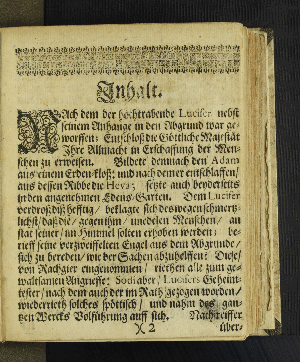 Inhalt.
NAch dem der hochtrabende Lucifer nebst
seinem Anhange in den Abgrund war ge-
worffen: Entschloß die Göttliche Majestät
Ihre Allmacht in Erschaffung der Men-
schen zu erweisen. Bildete demnach den Adam
aus einem Erden-kloß; und nach dem er entschlaffen/
aus dessen Ribbe die Heva; setzte auch beyderseits
in den angenehmen Edens-Garten. Dem Lucifer
verdroß diß hefftig/ beklagte sich deswegen schmertz-
lichst/ daß die/ gegen ihm/ unedelen Menschen/ an
stat seiner/ im Himmel solten erhoben werden: be-
rieff seine verzweiffelten Engel aus dem Abgrunde/
sich zu bereden/ wie der Sachen abzuhelffen? Diese/
von Rachgier eingenommen/ riethen alle zum ge-
waltsamen Angriffe: Lucifers Geheim-
tester/ nach dem auch der im Rath gezogen worden/
wiederrieth solches spöttisch/ und nahm des gan-
tzen Wercks Vollführung auff sich. Nachtreiffer
)( 2 über-